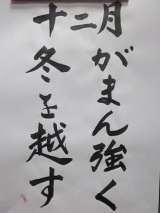 十二月がまん強く
冬を越す